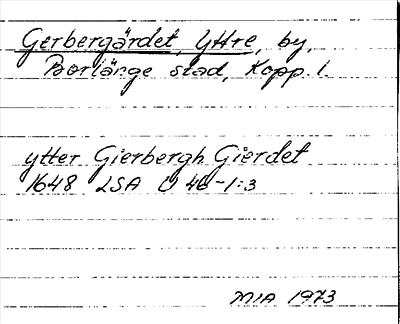 Gerbergärdet, Yttre, by,
Borlänge stad, Kopp. l.
ytter Gierbergh Gierdet
1648 LSA U 46-1:3
MIA 1973